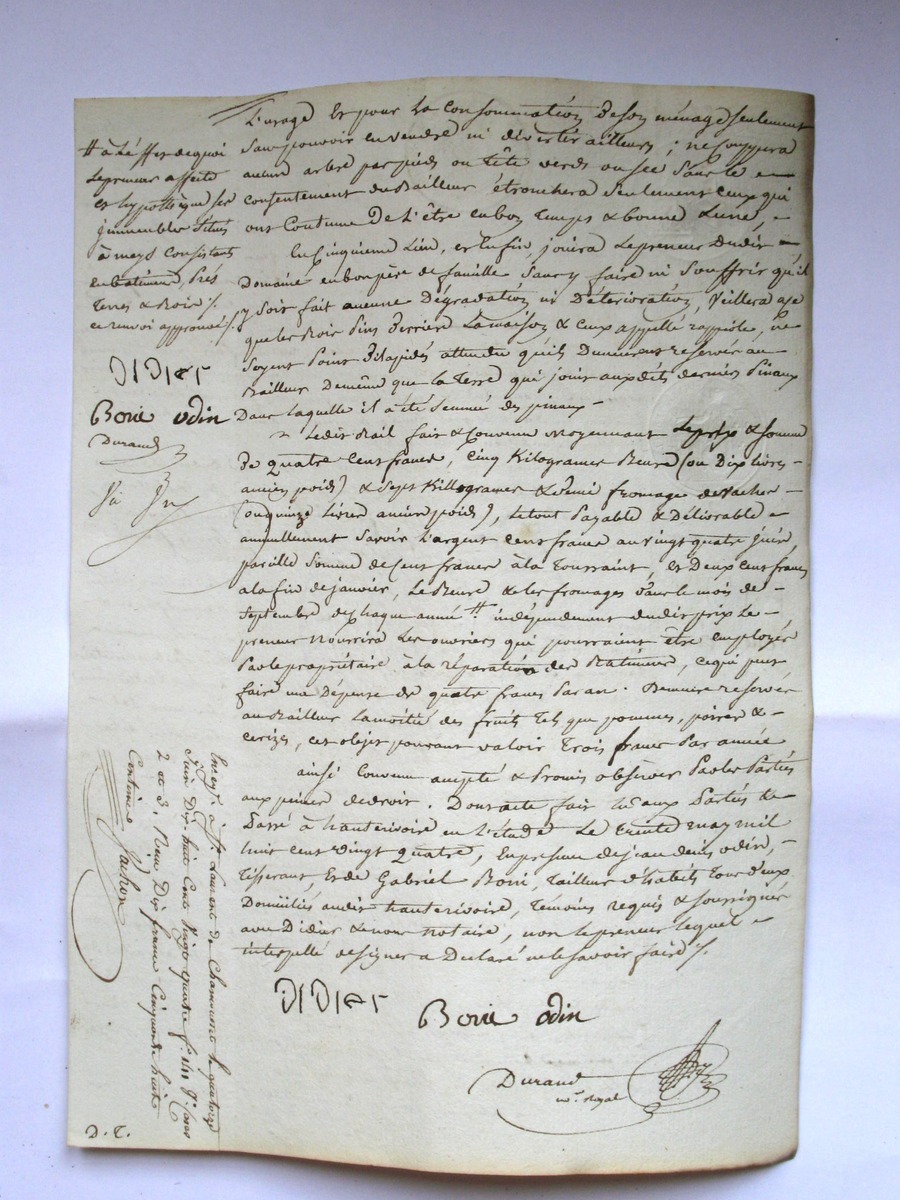 L'usage Et pour la Consommation de son ménage seulement
Sans pouvoir en vendre ni divertir ailleurs ; ne Couppera
aucun arbre par pieds ou tête verds ou sec Sans le
Consentement du Bailleur étronchera seulement ceux qui
ont Coutume de L'être en bon Temps & bonne Lune,
En Cinquieme Lieu, et Enfin, jouira Le preneur dudit
Domaine en bon père de famille Sans y faire ni Souffrir qu'il
y Soit fait aucune Dégradation ni Détérioration, Veillera a ce
que les Bois Pins derrier La maison & Ceux appellé , ne
Soyent Point Dilapidés attendu qu'ils Demeurent reservés au
Bailleur De même que la Terre qui joint aux dits derniers Pinaux
Dans laquelle il a été Semmé des pinaux.
Ledit Bail fait & Convenu moyennant Le prix & Somme
De quatre Cent francs, Cinq Kilogrames Beure (ou Dix livres
ancien poids) & Sept Killogrames & Demi fromage de vaches
(ou quinze Livres ancien poids), Le tout Payable & Délivrable
annuellement Savoir L'argent Cent francs au vingt quatre juin
pareille Somme de Cent francs à la Toussaint, et Deux Cent francs
a la fin de janvier, Le Beure & les fromages dans le mois de
Septembre de Chaque année # indépendament dudit prix Le
preneur nourrira Les ouvriers qui pourraient être employés
Par le propriétaire à la réparation des Batiments, ce qui peut
faire une Dépense de quatre francs Par an. Demeure reservée
au Bailleur La moitié des fruits Tels que pommes, poires &
Cerizes, Cet objet pouvant valoir Trois francs Par année
ainsi Convenu accepté & Promis observer Par les Parties
aux peines de droit. Dont acte fait Lu aux Parties &
Passé à hauterivoire en L'étude Le trente may mil
huit cent vingt quatre, En presence de jean denis odin,
Tisserant, Et de Gabriel Boui, Tailleur d'habits Tous deux
Domiciliés audit hauterivoire, Témoins requis & Soussignés
avec Didier & nous notaire, non Le preneur Lequel
interpellé de signer a Déclaré ne le savoir faire /.
DIDIER
Boui odin
Durand
no.re royal
# à L'Effet de quoi
Le preneur affecte
Et hypothèque ses
immeubles situés
à meys Consistant
en batiment, Prés
Terres & Bois /.
ce renvoi approuvé /.
DIDIER
Boui odin
Durand
Enreg.é à St Laurent de Chamousset le quatorze
Juin Dix huit Cent Vingt quatre f.o
2 et 3. Reçu Dix francs Cinquante huit
Centimes
D. T.